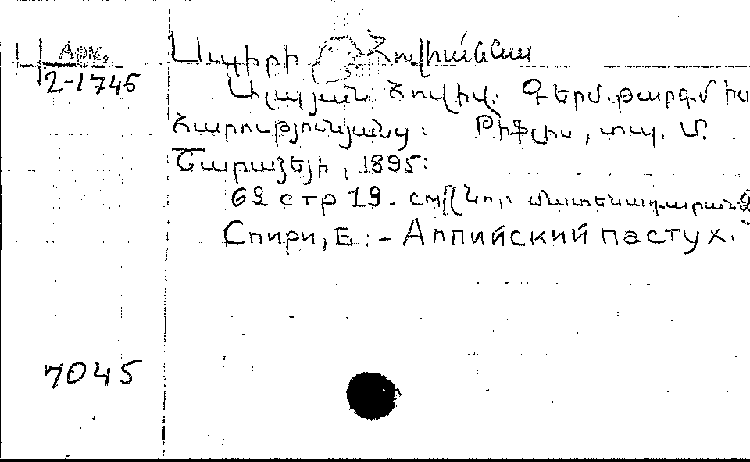 Ц Арм.
2-1745
Սպիրի Հովհաննա
Ալպյան հովիվ: Գերմ. թարգմ իս
Հարությունյանց: Թիֆլիս, տպ. Մ.
Շարաձեյի, 1895:
62 стр 19.
Спири, Е. :- Алпийский пастух.
7045